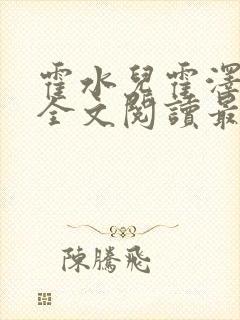 霍水兒霍澤
全文閱讀最
陳騰飛